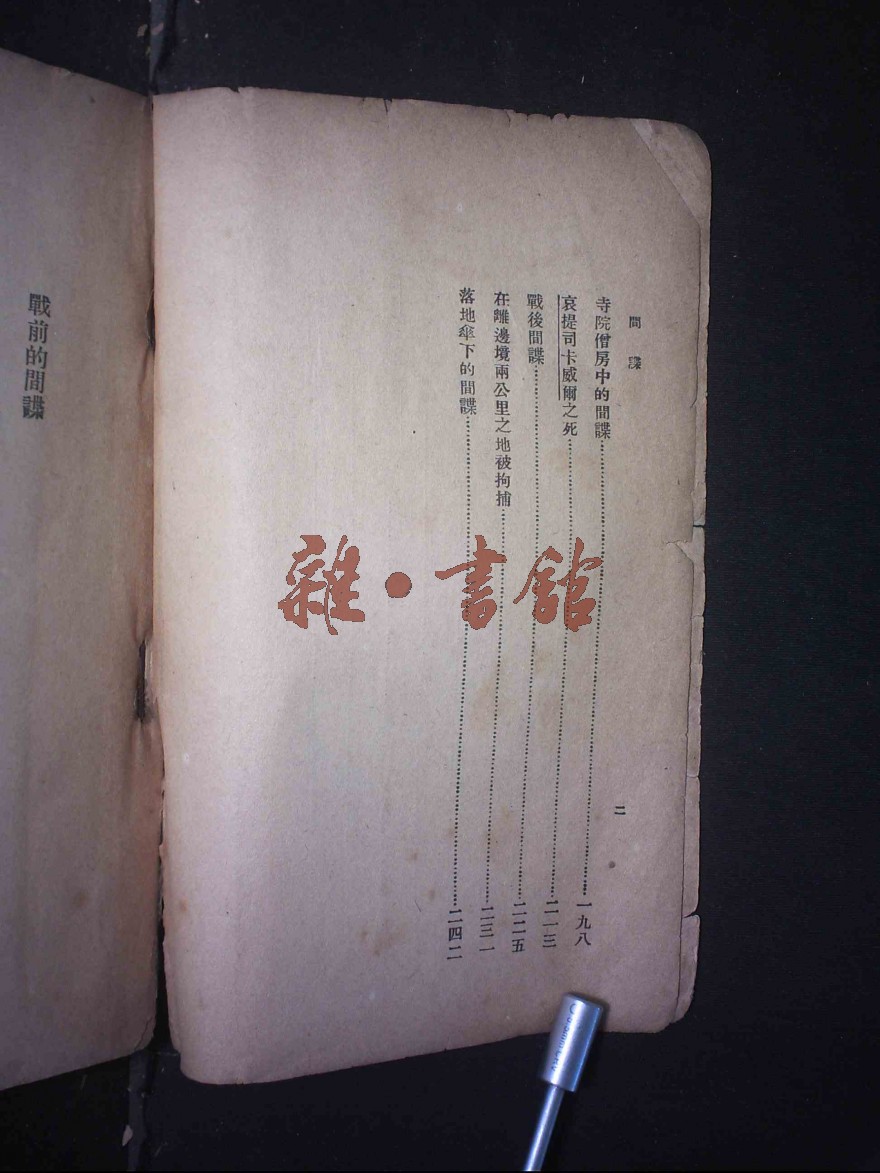 間諜
寺院僧房中的間諜 一九八
哀提司卡威爾之死 二一三
戰後間諜 二二五
在離邊境兩公里之地被拘捕 二三一
落地傘下的間諜 二四二
二
戰前的間諜
雜·書館